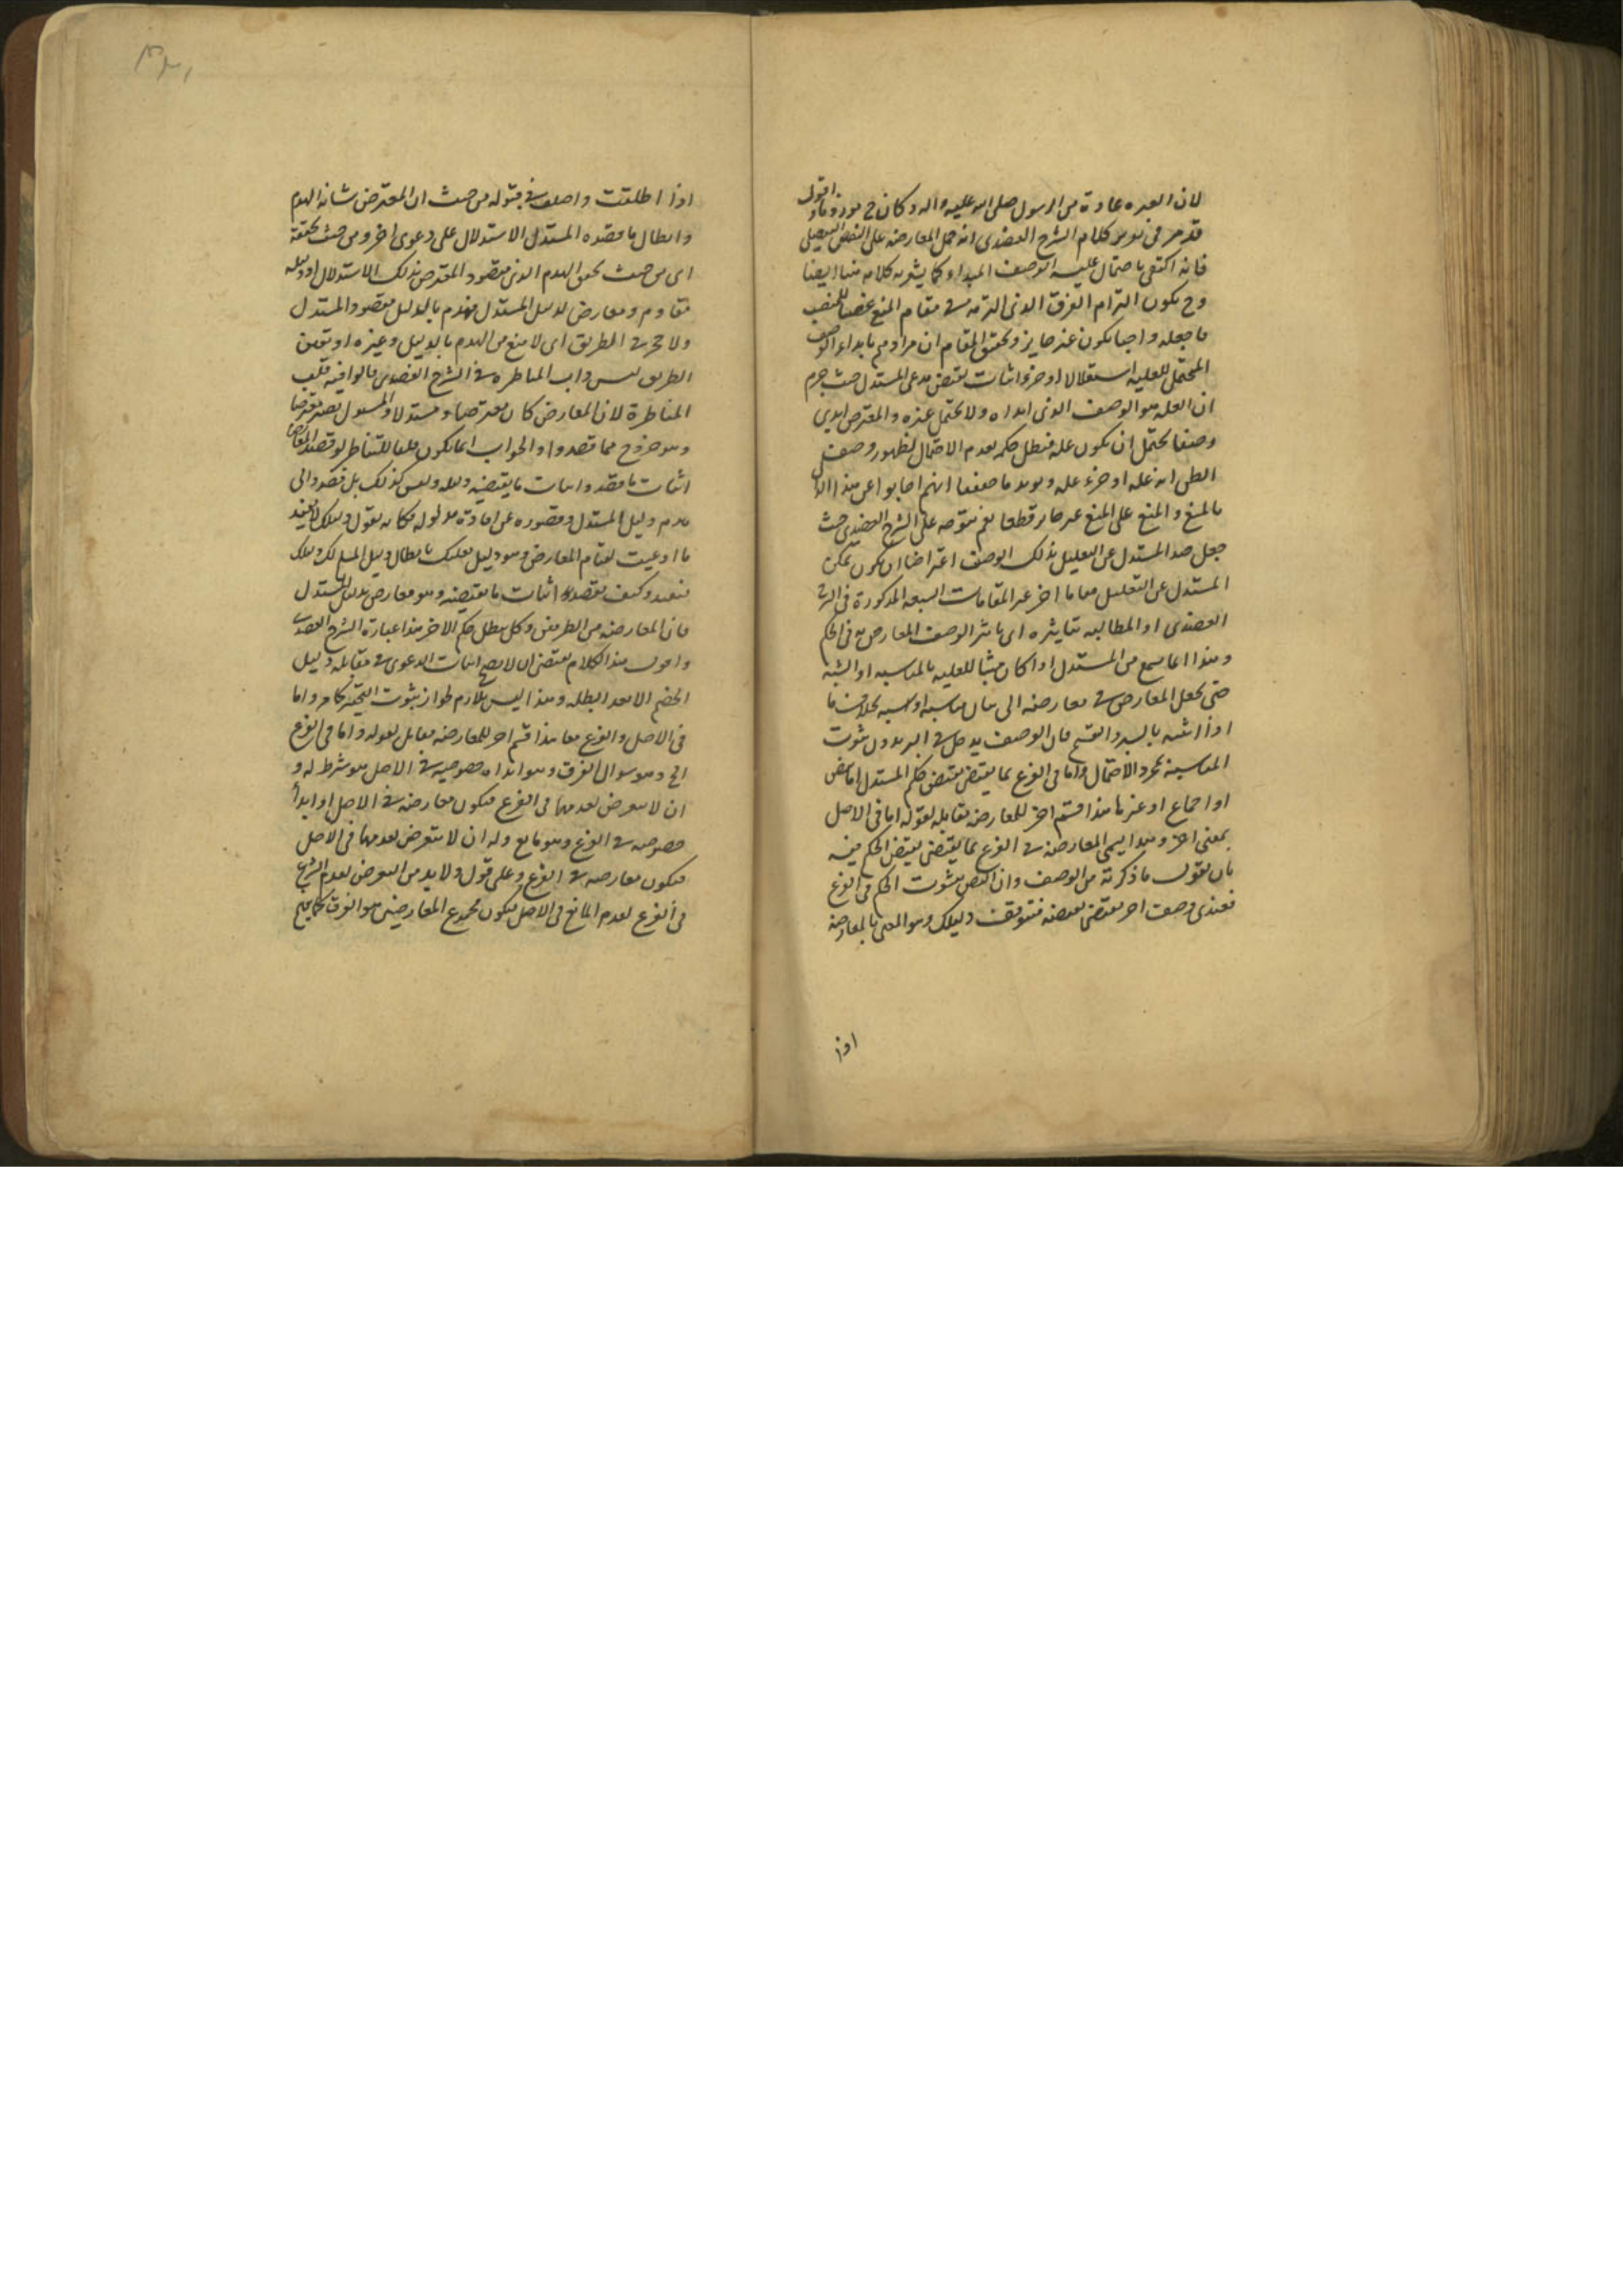 لان العبره عادة من الرسول صلى الله عليه واله وكان ح مورد وما اقول
قد مر فى كلام الشرح العضدى انه حمل المعارضه على النقض التفصيلى
فانه اكتفى باحتمال عليه الوصف المبدا وكما يشعر به كلامه هنا ايضا
وح يكون التزام الفرق الذى التزمه فى مقام المنع غصبا للمنصب
ما جعله واجبا يكون غير جايز وتحقيق المقام ان مرادهم بابداء الوصف
المحتمل للعليه استقلالا او جزءا اثبات نقيض مدعى المستدل حيث جزم
ان العله هو الوصف الذى ابداه ولا يحتمل غيره والمعترض ابدى
وصفا يحتمل ان يكون عله فبطل حكمه بعدم الاحتمال لظهور وصف
انه عله او جزء عله ويويد ما انهم اجابوا عن هذا
بالمنع والمنع على المنع غير جايز قطعا نعم يتوجه على الشرح العضدى حيث
جعل صد المستدل عن التعليل بذلك الوصف اعتراضا ان يكون تمكن
المستدل من التعليل مقاما اخر غير المقامات السبعه المذكورة فى الشرح
العضدى او المطالبه بتاثيره اى تاثير الوصف المعارض به فى الحكم
وهذا انما يسمع من المستدل اذا كان مثبتا للعليه بالمناسبه او الشبه
حتى يحتاج المعارض فى معارضته الى بيان مناسبه او شبه بخلاف ما
اذا اثبته بالسبر والتقسيم فان الوصف يدخل فى السبر بدون ثبوت
المناسبه بمجرد الاحتمال واما فى الفرع بما يقتضى نقيض حكم المستدل اما بنص
او اجماع او غيرهما هذا قسم اخر للمعارضه مقابله لقوله اما فى الاصل
بمعنى اخر وهذا يسمى المعارضه فى الفرع بما يقتضى نقيض الحكم فيه
بان يقول ما ذكرته من الوصف وان اقتضى ثبوت الحكم فى الفرع
فعندى وصف اخر يقتضى نقيضه فيتوقف دليلك وهو المعنى بالمعارضه
اذا
اذا اطلقت واختلف فى قبوله من حيث ان المعترض شانه الهدم
وابطال ما قصده المستدل لا الاستدلال على دعوى اخر ومن حيث تحققه
اى من حيث تحقق الهدم الذى مقصود المعترض بذلك الاستدلال او دليله
مقاوم ومعارض لدليل المستدل فينهدم بالدليل مقصود المستدل
ولا حجر فى الطريق اى لا منع من الهدم بالدليل وغيره او تعين
الطريق ليس داب المناظره فى الشرح العضدى قالوا فيه قلب
المناظرة لان المعارض كان معترضا ومستدلا والمسئول يصير معترضا
وهو خروج مما قصدوا والجواب انما يكون قلبا للتناظر لو قصد المعارض
اثبات ما قصدوا اثبات ما يقتضيه دليله وليس كذلك بل قصد الى
هدم دليل المستدل وقصوره عن افادة مدلوله فكانه يقول دليلك لا يفيد
ما ادعيت لقيام المعارض وهو دليل فعليك بابطال دليل ليسلم لك دليلك
فيفيد وكيف يقصد به اثبات ما يقتضيه وهو معارض بدليل المستدل
فان المعارضه من الطرفين وكل يبطل حكم الاخر هذا عبارة الشرح العضدى
واقول هذا الكلام يقتضى ان لا يصح اثبات الدعوى فى مقابله دليل
الخصم الا بعد ابطاله وهذا ليس بلازم لجواز ثبوت كما مر واما
فى الاصل والفرع معا هذا قسم اخر للمعارضه مقابل لقوله واما فى الفرع
الخ وهو سوال الفرق وهو ابداء خصوصيه فى الاصل هو شرط له و
ان لا يتعرض لعدمها فى الفرع فيكون معارضه فى الاصل او ابدأ
خصوصيه فى الفرع وهو مانع وله ان لا يتعرض لعدمها فى الاصل
فيكون معارضه فى الفرع وعلى قول ولا بد من التعرض لعدم الشرط
فى الفرع لعدم المانع فى الاصل فيكون مجموع المعارضتين هو الفرق